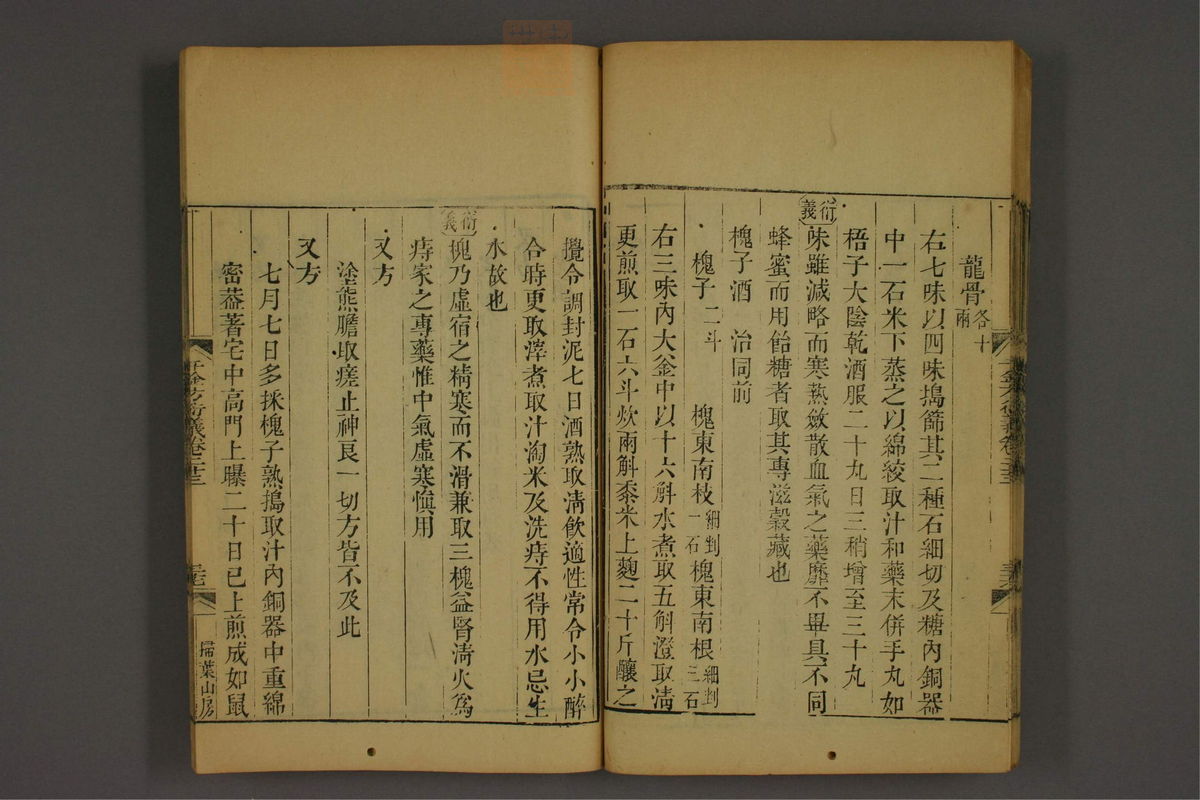 龍骨各十兩
右七味以四味搗篩其二種石細切及糖內銅器
中一石米下蒸之以綿絞取汁和藥末併手丸如
梧子大陰乾酒服二十丸日三稍增至三十丸
衍義
味雖減略而寒熱斂散血氣之藥靡不畢具不同
蜂蜜而用飴糖者取其專滋穀藏也
槐子酒 治同前
槐子二斗 槐東南枝細剉一石 槐東南根細剉三石
右三味內大釜中以十六斛水煮取五斛澄取淸
更煎取一石六斗炊兩斛黍米上麴二十斤釀之
攪令調封泥七日酒熟取淸飮適性常令小小醉
合時更取滓煮取汁淘米及洗痔不得用水忌生
水故也
衍義
槐乃虛宿之精寒而不滑兼取三槐益腎淸火爲
痔家之專藥惟中氣虛寒愼用
又方
塗熊膽取瘥止神良一切方皆不及此
又方
七月七日多採槐子熟搗取汁內銅器中重綿
密葢著宅中高門上曝二十日已上煎成如鼠
千金方衍義卷二十三
掃葉山房